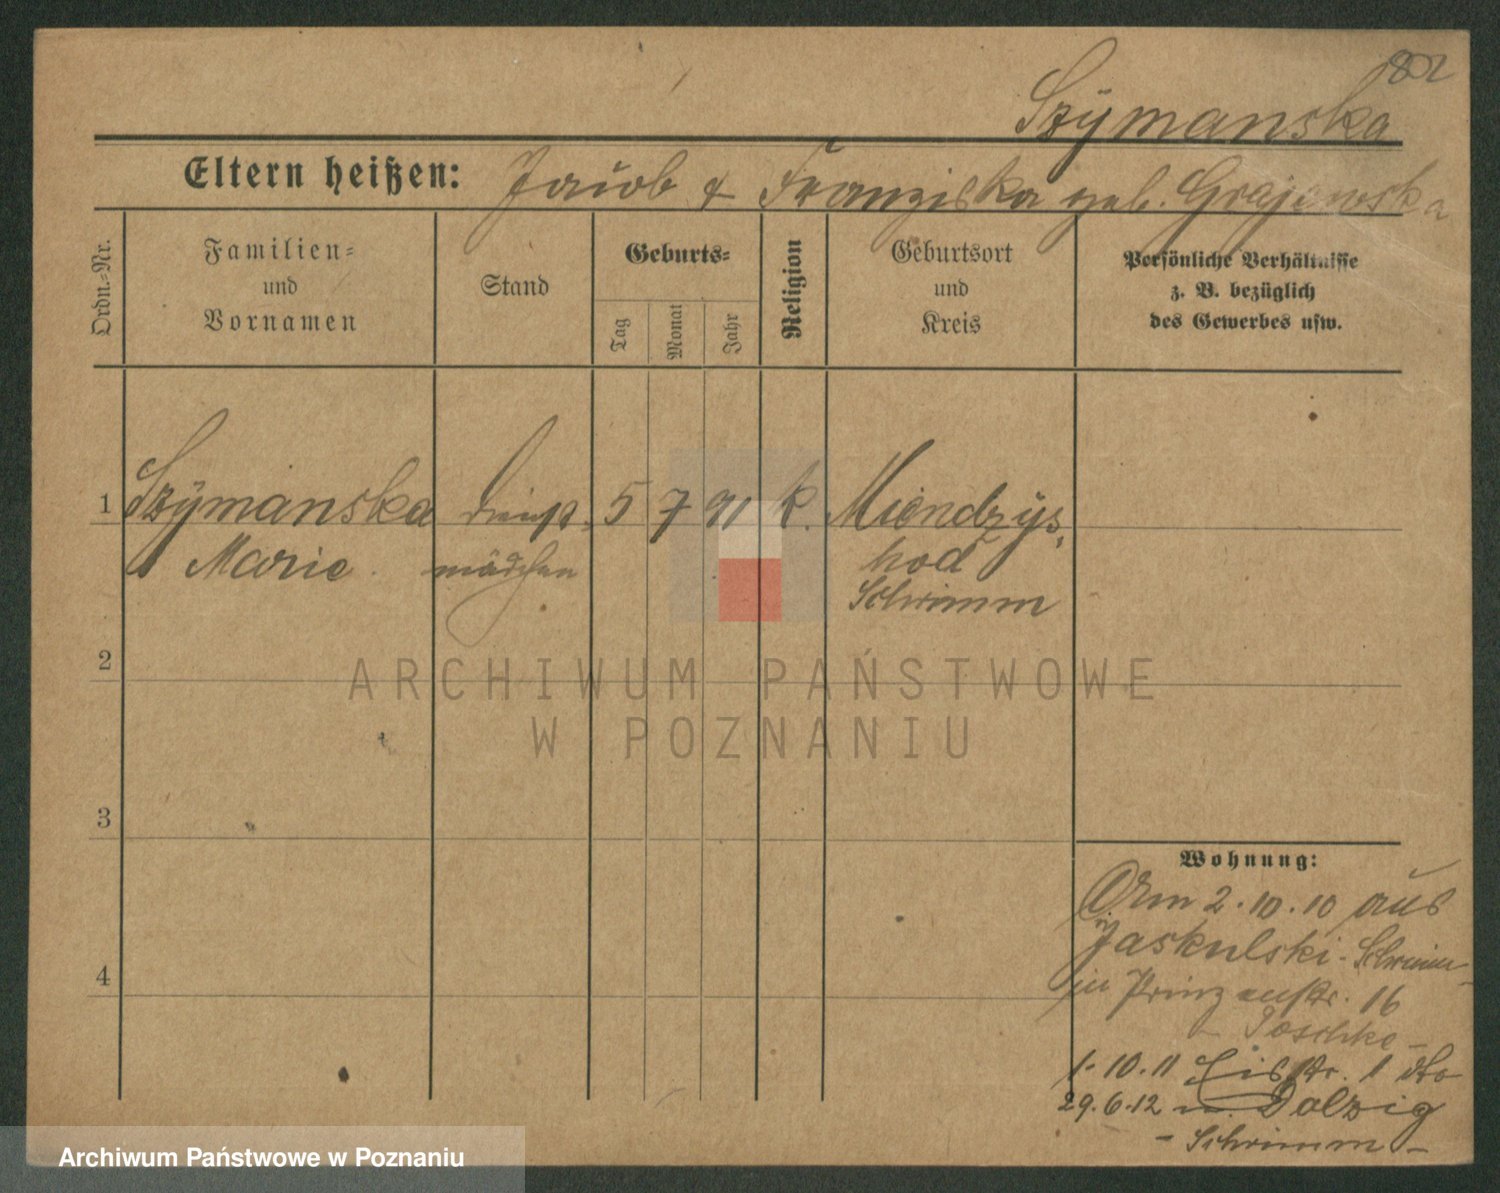 802
Szÿmanska
Eltern heißen: Jacob & Franziska geb. Grajewska
Ordn.-Nr.
Familien-
und
Vornamen
Stand
Geburts-
Tag
Monat
Jahr
Religion
Geburtsort
und
Kreis
Persönliche Verhältnisse
z. B. bezüglich
des Gewerbes usw.
1 Szÿmanska Dienst- 5 7 91 k. Miendzÿs
Marie mädchen hod
Schrimm
2
3
4
ARCHIWUM PAŃSTWOWE
W POZNANIU
Wohnung:
2.10.10 aus
Jaskulski - Schrimm -
in Prinzenstr. 16
- Poschke -
1.10.11 Eisstr. 1 dto
29.6.12 n. Dolzig
- Schrimm -
Archiwum Państwowe w Poznaniu